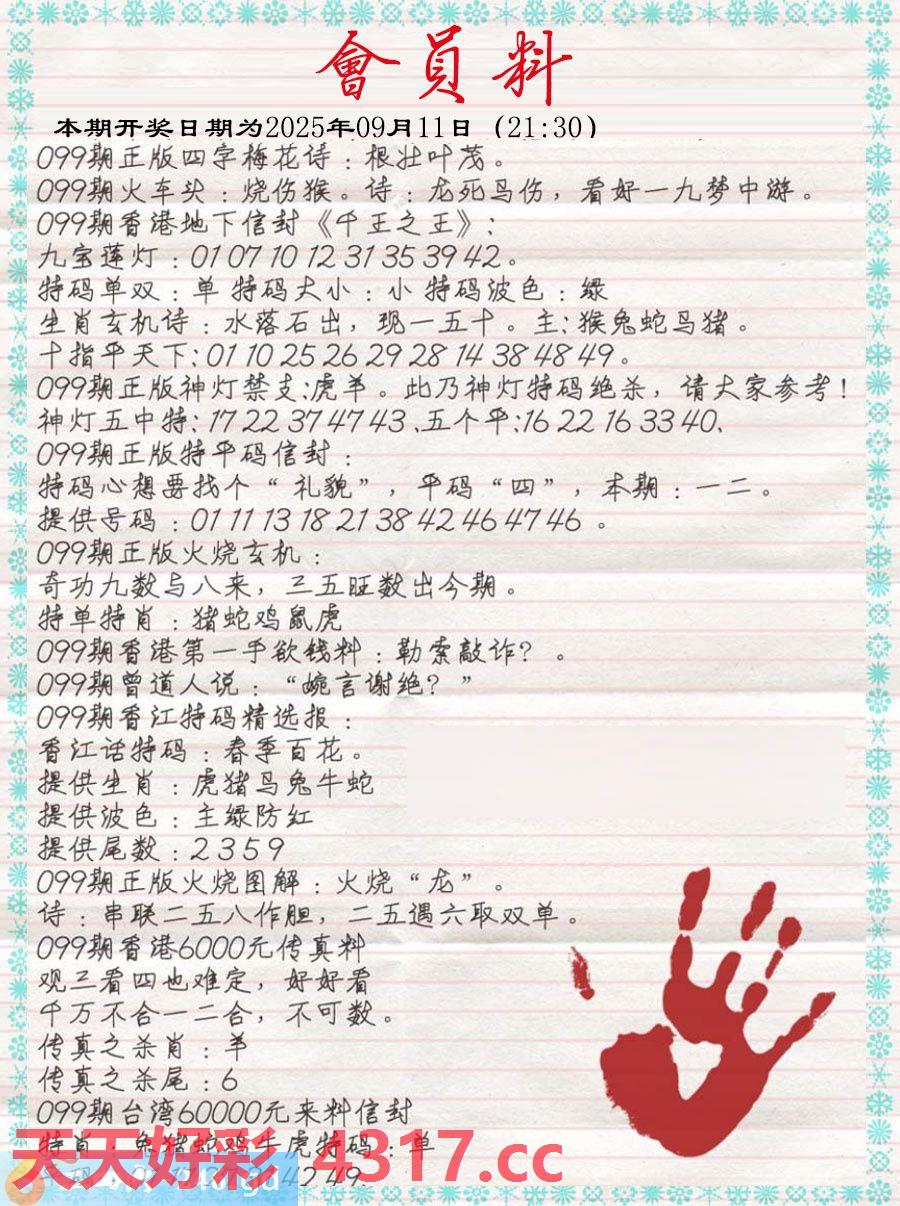 會員料
本期开奖日期为2025年09月11日（21:30）
099期正版四字梅花诗：根壮叶茂。
099期火车头：烧伤猴。诗：龙死鸟伤，看好一九梦中游。
099期香港地下信封《千王之王》：
九宝莲灯：01 07 10 12 31 35 39 42。
特码单双：单 特码大小：小 特码波色：绿
生肖玄机诗：水落石出，现一五十。主：猴兔蛇鸟猪。
十指平天下：01 10 25 26 29 28 14 38 48 49。
099期正版神灯禁支：虎羊。此乃神灯特码绝杀，请大家参考！
神灯五中特：17 22 37 47 43、五个平：16 22 16 33 40、
099期正版特平码信封：
特码心想要找个“礼貌”，平码“四”，本期：一二。
提供号码：01 11 13 18 21 38 42 46 47 46 。
099期正版火烧玄机：
奇功九数与八来，三五旺数出今期。
特单特肖：猪蛇鸡鼠虎
099期香港第一手欲钱料：勒索敲诈？。
099期曾道人说：“婉言谢绝？”
099期香江特码精选报：
香江话特码：春季百花。
提供生肖：虎猪鸟兔牛蛇
提供波色：主绿防红
提供尾数：2 3 5 9
099期正版火烧图解：火烧“龙”。
诗：串联二五八作胆，二五遇六取双单。
099期香港6000元传真料
观三看四也难定，好好看
千万不合一二合，不可数。
传真之杀肖：羊
传真之杀尾：6
099期台湾60000元来料信封
特肖：兔猪蛇鸡牛虎特码：单
天天好彩 4317.cc
42 49